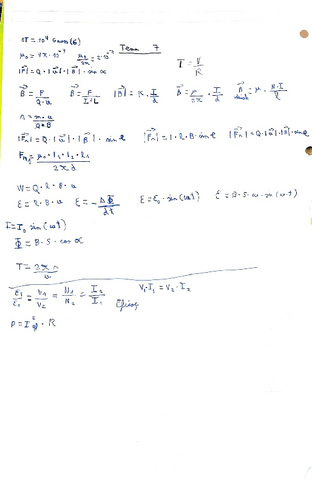 1T = 10⁴ Gauss (G)
μ₀ = 4π·10⁻⁷   μ₀/2π = 2·10⁻⁷   Tema 7   T = V/R
|F| = Q·|v|·|B|·sin α
B = F/Q·v   B = F/I·L   |B| = K·I/d   B = μ/2π·I/d   B = μ·N·I/l
r = m·v/Q·B
|Fm| = Q·|v|·|B|·sin   |Fm| = I·l·B·sin   |Fm| = Q·|v|·|B|·sin
F = μ₀·I₁·I₂·l/2πd
W = Q·l·B·v
ε = l·B·v   ε = -ΔΦ/dt   ε = ε₀·sin(ωt)   ε = B·S·ω·sin(ω·t)
I = I₀ sin(ωt)
Φ = B·S·cos α
T = 2πr/v
ε₁/ε₂ = V₁/V₂ = N₁/N₂ = I₂/I₁   V₁·I₁ = V₂·I₂
P = I²·R